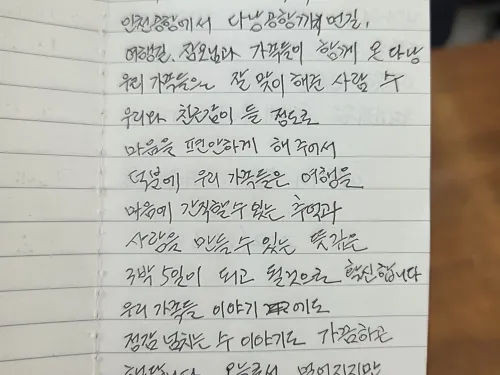 인천공항에서 다낭공항까지 먼길,
여행길. 장모님과 가족들이 함께 온 다낭
우리 가족들을 잘 맞이 해준 사람 수
우리와 친근감이 들 정도로
마음을 편안하게 해 주어서
덕분에 우리 가족들은 여행을
마음에 간직할 수 있는 추억과
사랑을 만들 수 있는 뜻깊은
3박 5일이 되고 될것으로 확신합니다
우리 가족들 이야기 에도
정감 넘치는 수 이야기도 가끔하곤
오늘로서 멀어지지만